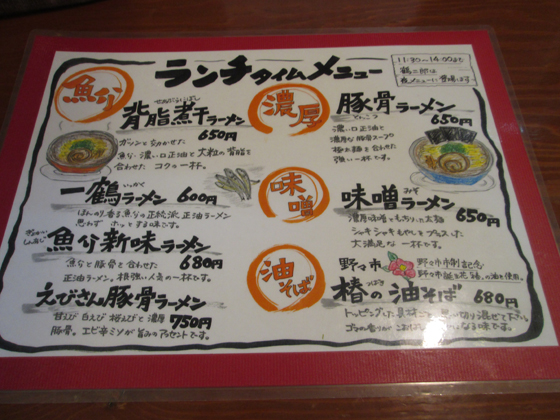 ランチタイムメニュー
11:30〜14:00まで
魚介
せあぶらにぼし
背脂煮干ラーメン
650円
ガツンと効かせた
魚介・濃い口正油と大粒の背脂を
合わせた コクの一杯。
いっかく
一鶴ラーメン 600円
ほんのり香る魚介の正統派 正油ラーメン
思わず ホッとする味です。
魚介新味ラーメン
680円
魚介と豚骨を合わせた
正油ラーメン。根強い人気の一杯です。
えびさん豚骨ラーメン
甘えび 白えび 桜えびと濃厚 750円
豚骨。エビ辛ミソが旨みのアクセントです。
濃厚
とんこつ
豚骨ラーメン
650円
濃い口正油と
濃厚な豚骨スープを
極太麺と合わせた
強い一杯です。
味噌
みそ
味噌ラーメン
650円
濃厚味噌ともっちり太麺
シャキシャキもやしをプラスした
大満足な一杯です。
油そば
野々市
野々市市制記念
つばき
椿の油そば 680円
トッピングした具材ごと 思い切り混ぜて下さい